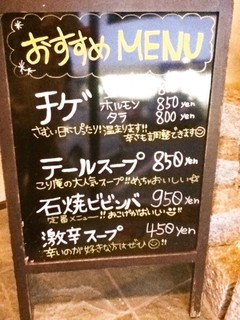 おすすめ MENU
チゲ
ホルモン 850 yen
タラ 800 yen
さむい日にぴったり!温まります!!
辛さも調整できます
テールスープ 850 yen
こり庵の大人気スープ!!めちゃおいしい☆
石焼ビビンバ 950 yen
定番メニュー!!おこげがおいしい!!
激辛スープ 450 yen
辛いのが好きな方はぜひ!!